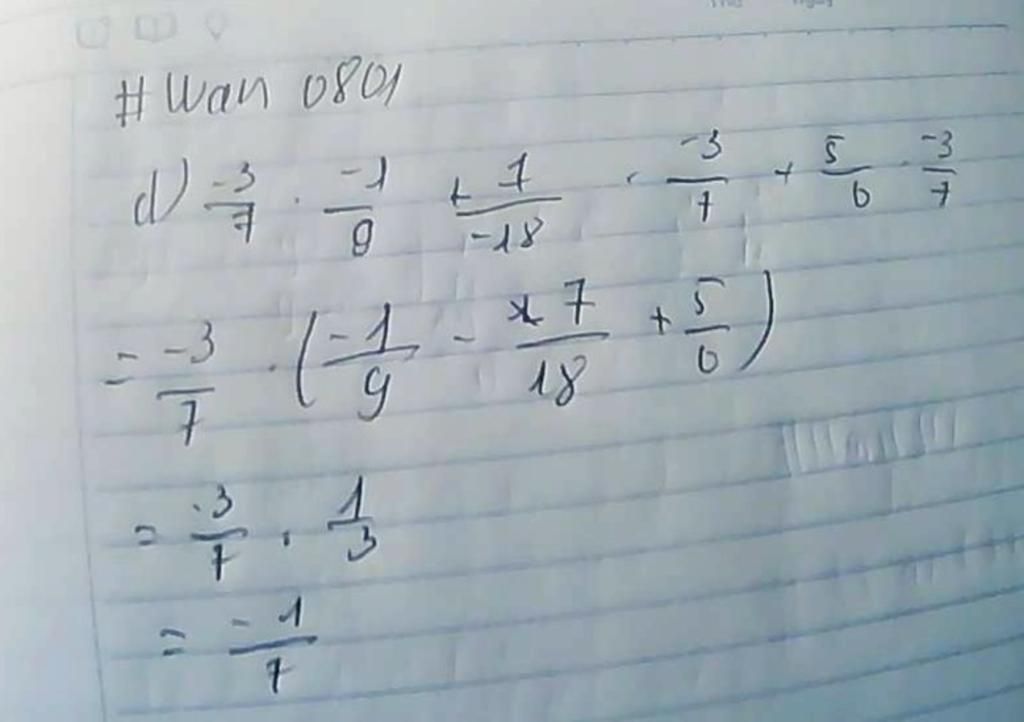 #Wan 0801
d) -3/7 . -1/9 + 7/-18 . -3/7 + 5/6 . -3/7
= -3/7 . (-1/9 - 7/18 + 5/6)
= -3/7 . 1/3
= -1/7